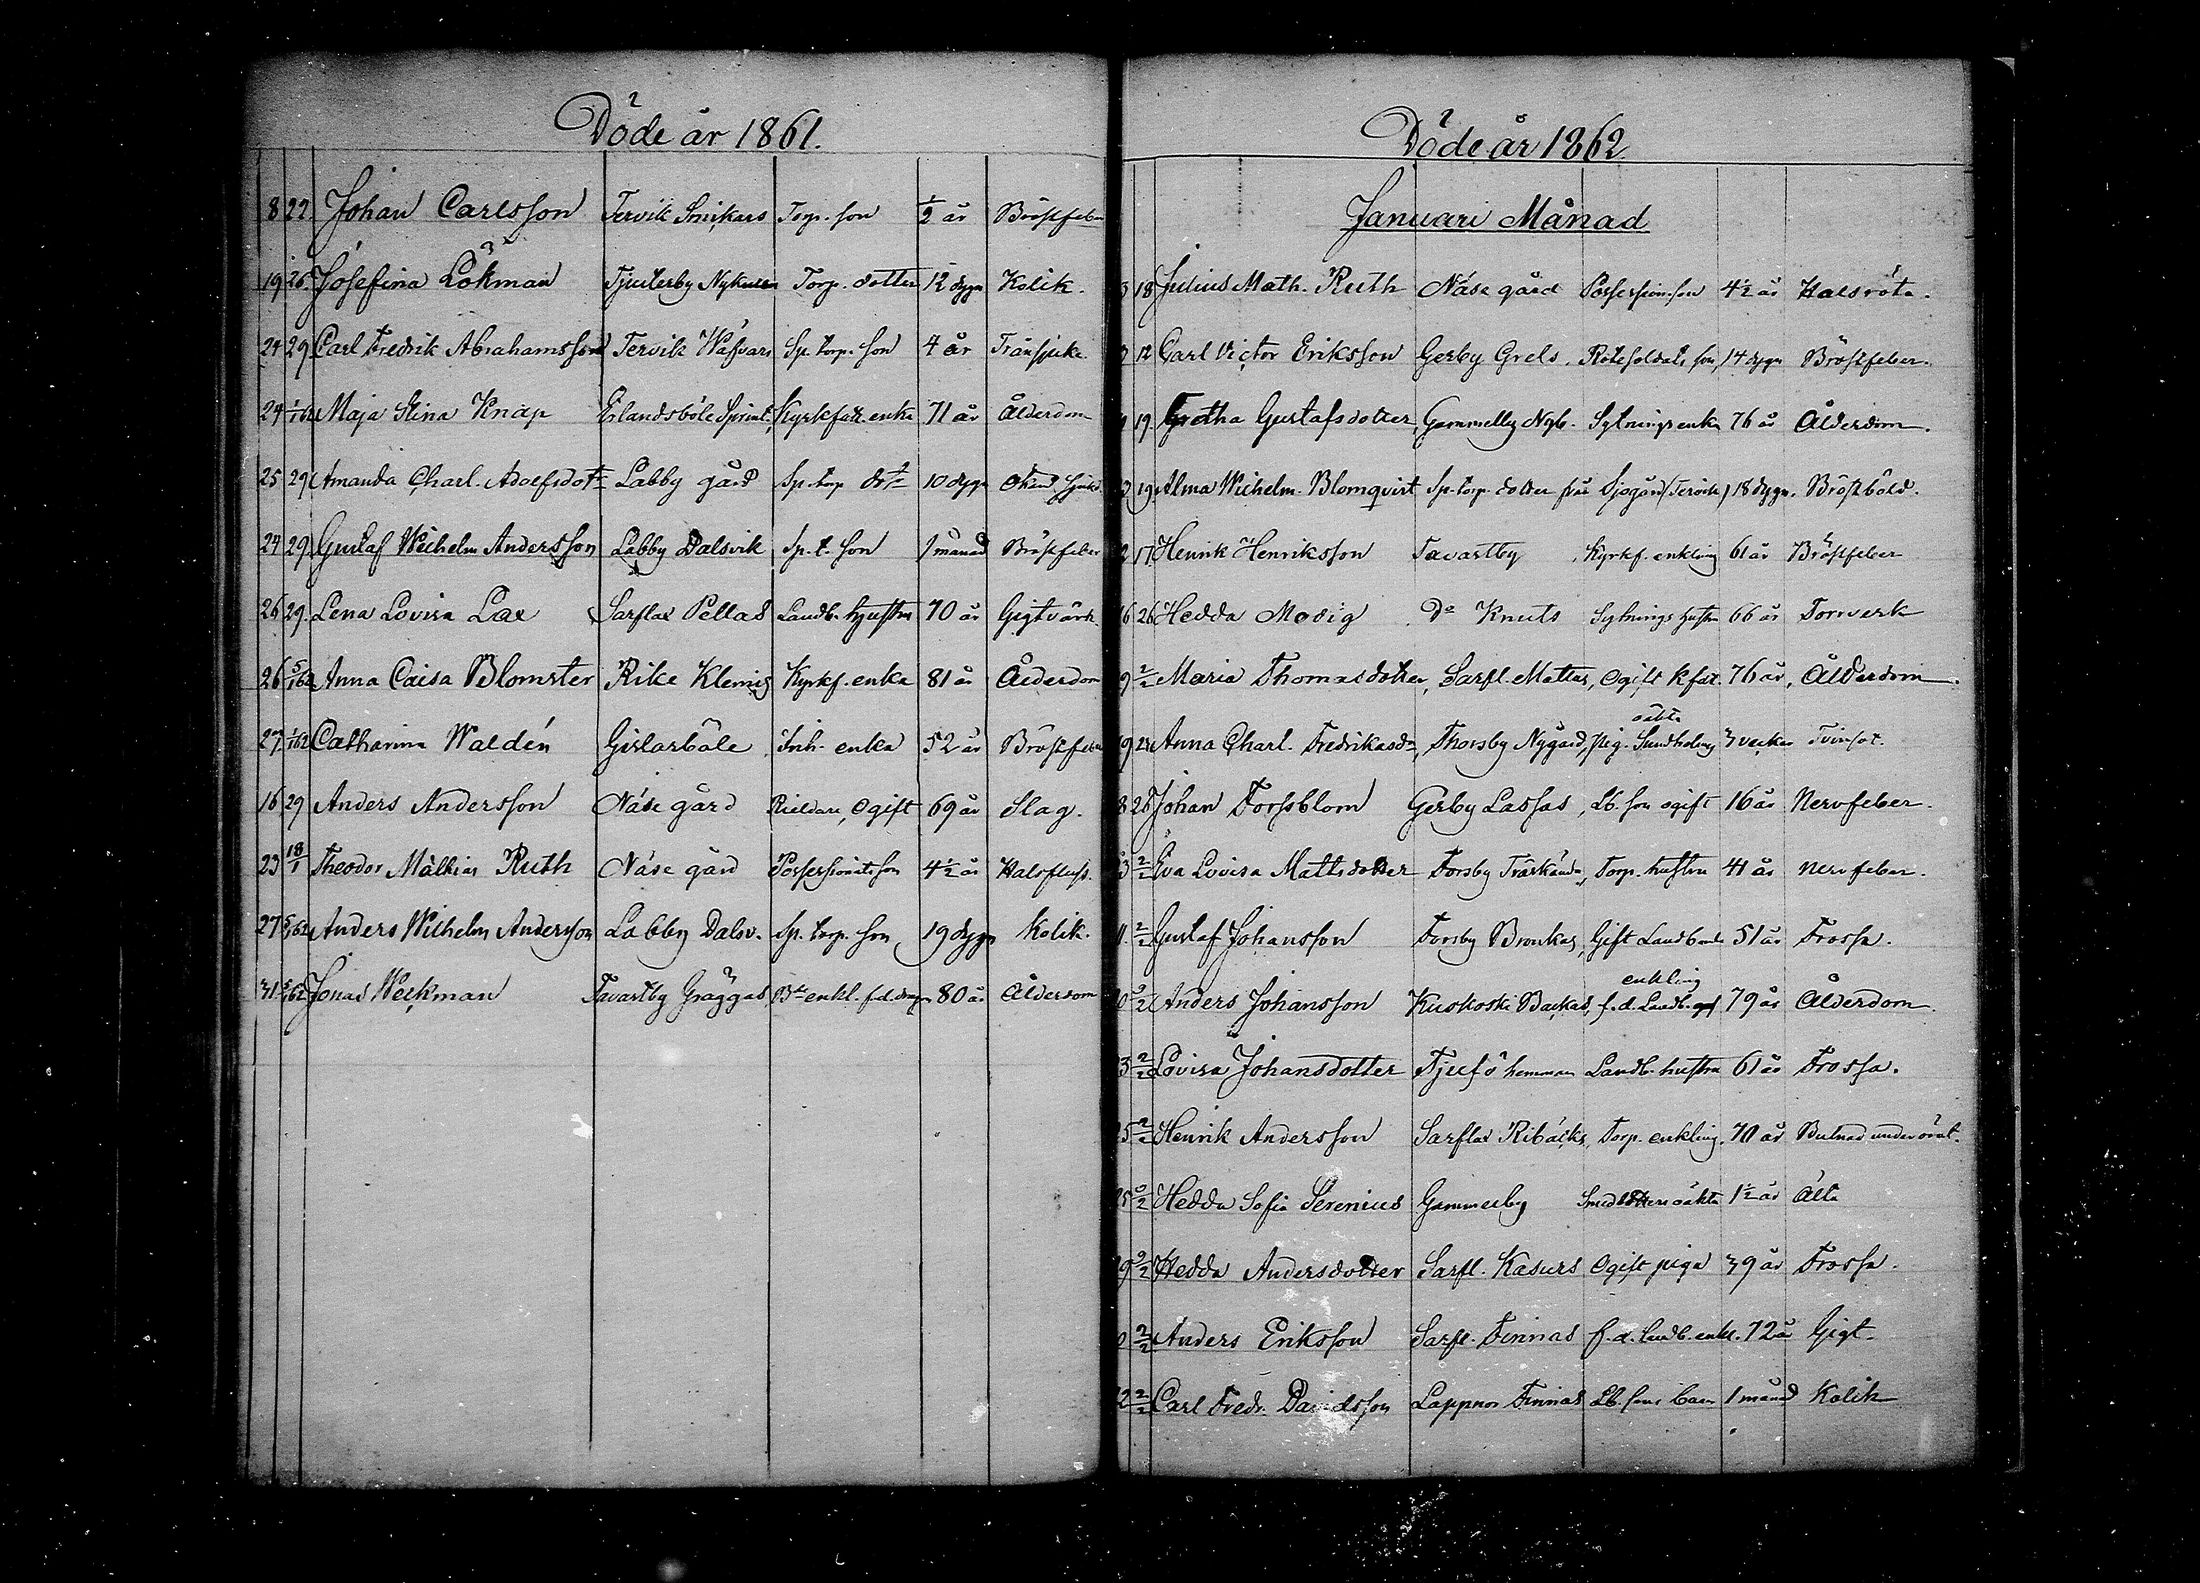 Döde år 1861.
8 22 Johan Carlsson Tervik Snikars Torp. son 1/2 år Bröstfeber
19 26 Josefina Lökman Tjusterby Torp. dotter 12 dygn Kolik.
24 29 Carl Fredrik Abrahamsson Tervik Sp. torp. son 4 år Transjuka
24 1/1 62 Maja Stina Knap Erlandsböle Sprint, Kyrkfatt. enka 71 år Ålderdom
25 29 Amanda Charl. Adolfsdotr Labby gård Sp. torp dotr 10 dygn Okänd
24 29 Gustaf Wilhelm Andersson Labby Dalsvik Sp. t. son 1 månad Bröstfeber
26 29. Lena Lovisa Lax Sarflax Pellas Landb. hustru 70 år Gigtvärk
26 5/1 62 Anna Caisa Blomster Rike Klemis Kyrkf. enka 81 år Ålderdom
27 1/1 62 Catharina Waldén Gislarböle Inh. enka 52 år Bröstfeber
16 29 Anders Andersson Näse gård ogift 69 år Slag.
23 18/1 Theodor Mathias Ruth Näse gård Possessionats son 4 1/2 år Halsfluss.
27 5/1 62 Anders Wilhelm Andersson Labby Dalsv. Sp. torp. son 19 dygn Kolik.
31 5/1 62 Jonas Weckman Tavastby Gräggas Bde enkl. f.d. 80 år Ålderdom
Döde år 1862
Januari Månad
3 18 Julius Math. Ruth Näse gård Possessions son 4 1/2 år Halsröta.
12 Carl Victor Eriksson Gerby Grels. Rotesoldats son, 14 dygn Bröstfeber.
19. Gretha Gustafsdotter, Gammelby Nyb. Sytningsenka 76 år Ålderdom.
19, Alma Wilhelm. Blomqvist Sp. torp. dotter från Sjogård (Tervik) 18 dygn. Bröstböld.
17 Henrik Henriksson Tavastby Kyrkf. enkling 61 år Bröstfeber
26 Hedda Modig Do Knuts Sytnings hustru 66 år Torrverk
9 2/2 Maria Thomasdotter, Sarfl. Mattas, Ogift k fat. 76 år, Ålderdom.
oäkta
Anna Charl. Fredriksdr, Thorsby Nygård, Pig. Sundholms 3 veckor Tvinsot.
8 26 Johan Forssblom Gerby Lassas, Lb. son ogift 16 år Nervfeber.
3 2/2 Eva Lovisa Mattsdotter Forsby Träskända, Torp. hustru 41 år Nervfeber.
2/2 Gustaf Johansson Forsby Broukas, Gift Landbonde 51 år Frossa.
enkling
2/2 Anders Johansson Kuskoski Backas, f.d. Landb. 79 år Ålderdom.
3 2/2 Lovisa Johansdotter Tjufö hemman Landb. hustru 61 år Frossa.
25 2/2 Henrik Andersson Sarflax Ribäcks, Torp. enkling. 70 år
25 2/2 Hedda Sofia Serenius Gammelby oäkta 1 1/2 år Älta
2/2 Hedda Andersdotter Sarfl. Kasurs Ogift piga 39 år Frossa.
2/2 Anders Eriksson Sarfl. Finnas f.d. landb. enkl. 72 år Gigt.
2/2 Carl Fredr. Davidsson Lappnor Finnas Lb. sons barn 1 månad Kolik